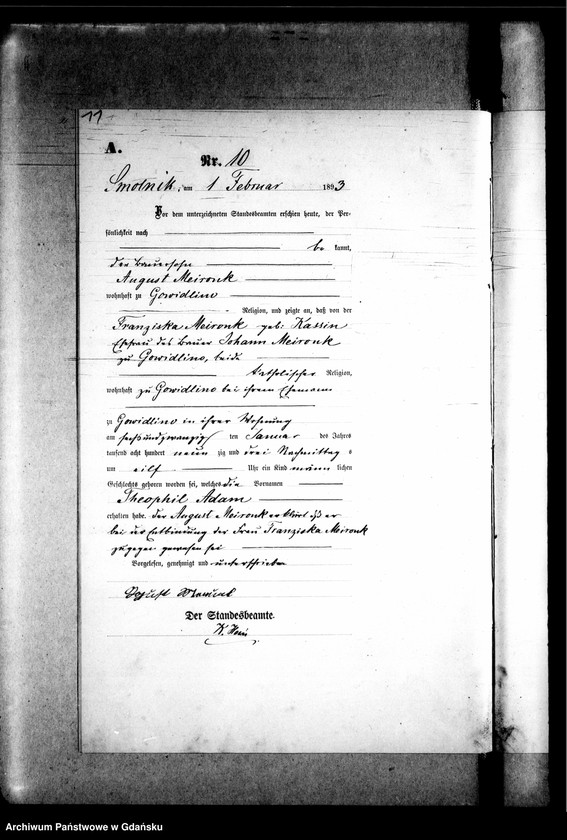 11
A.
Nr. 10
Smolnik, am 1 Februar 1893
Vor dem unterzeichneten Standesbeamten erschien heute, der Per-
sönlichkeit nach
be kannt,
der Bauersohn
August Meironk
wohnhaft zu Gowidlino
Religion, und zeigte an, daß von der
Franziska Meironk geb: Kassin
Ehefrau des Bauer Johann Meironk
zu Gowidlino, beide
katholischer Religion,
wohnhaft zu Gowidlino bei ihrem Ehemann
zu Gowidlino in ihrer Wohnung
am sechsundzwanzig ten Januar des Jahres
tausend acht hundert neun zig und drei Nachmittag s
um eilf Uhr ein Kind männ lichen
Geschlechts geboren worden sei, welches die Vornamen
Theophil Adam
erhalten habe. Der August Meironk erklärt daß er
bei der Entbindung der Frau Franziska Meironk
zugegen gewesen sei
Vorgelesen, genehmigt und unterschrieben
August
Der Standesbeamte.
Archiwum Państwowe w Gdańsku